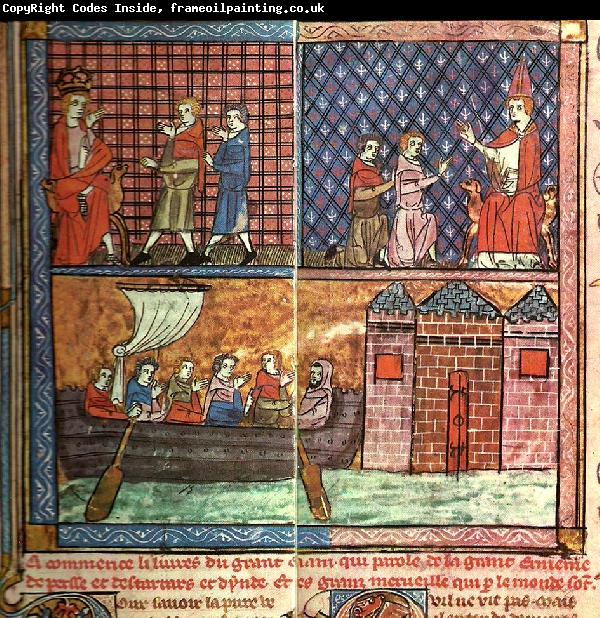 CopyRight Codes Inside, frameoilpainting.co.uk
Ci commence li liures du grant caam qui parole de la grant ermenie
de persse et des tartars et dynde. Et des granz merueille qui p le monde sont.
Pour sauoir la pure ve
vil ne vit pas mais